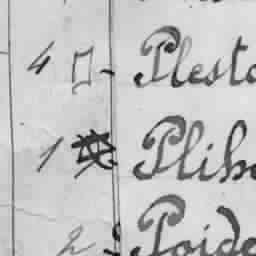 4 □- Plest
1 Plih
2 Poide